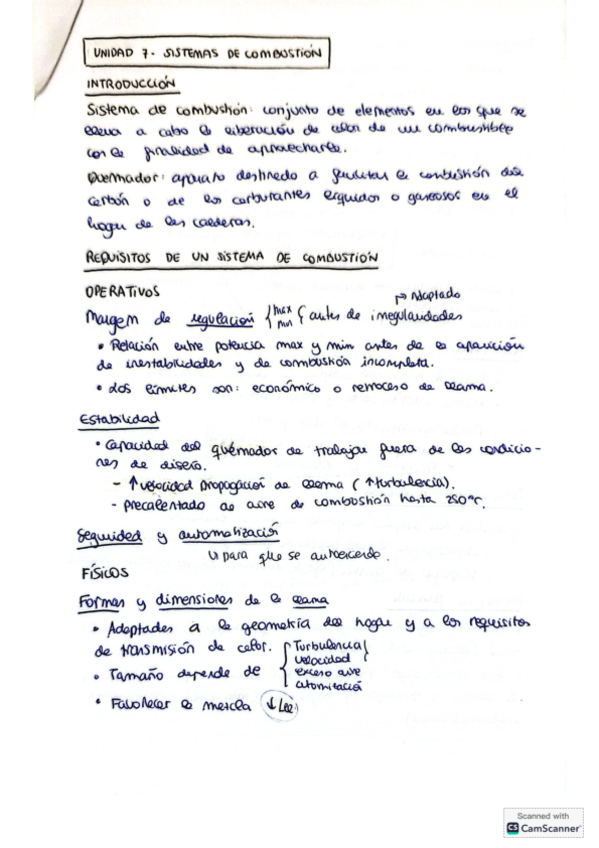 UNIDAD 7. SISTEMAS DE COMBUSTIÓN
INTRODUCCIÓN
Sistema de combustión: conjunto de elementos en los que se
lleva a cabo la liberación de calor de un combustible
con la finalidad de aprovecharlo.
Quemador: aparato destinado a facilitar la combustión del
carbón o de los carburantes líquidos o gaseosos en el
hogar de las calderas.
REQUISITOS DE UN SISTEMA DE COMBUSTIÓN
OPERATIVOS
→ Adaptado
Margem de regulación { max min { antes de irregularidades
• Relación entre potencia max y min antes de la aparición
de inestabilidades y de combustión incompleta.
• Los límites son: económico o retroceso de llama.
Estabilidad
• Capacidad del quemador de trabajar fuera de las condicio-
nes de diseño.
- ↑ velocidad propagación de llama (↑ turbulencia).
- Precalentado de aire de combustión hasta 250ºC.
Seguridad y automatización
↳ para que se autoencienda.
FÍSICOS
Formas y dimensiones de la llama
• Adaptadas a la geometría del hogar y a los requisitos
de transmisión de calor.
• Tamaño depende de { Turbulencia
velocidad
exceso aire
atomización
• Favorecer la mezcla ↓
Scanned with
CS CamScanner